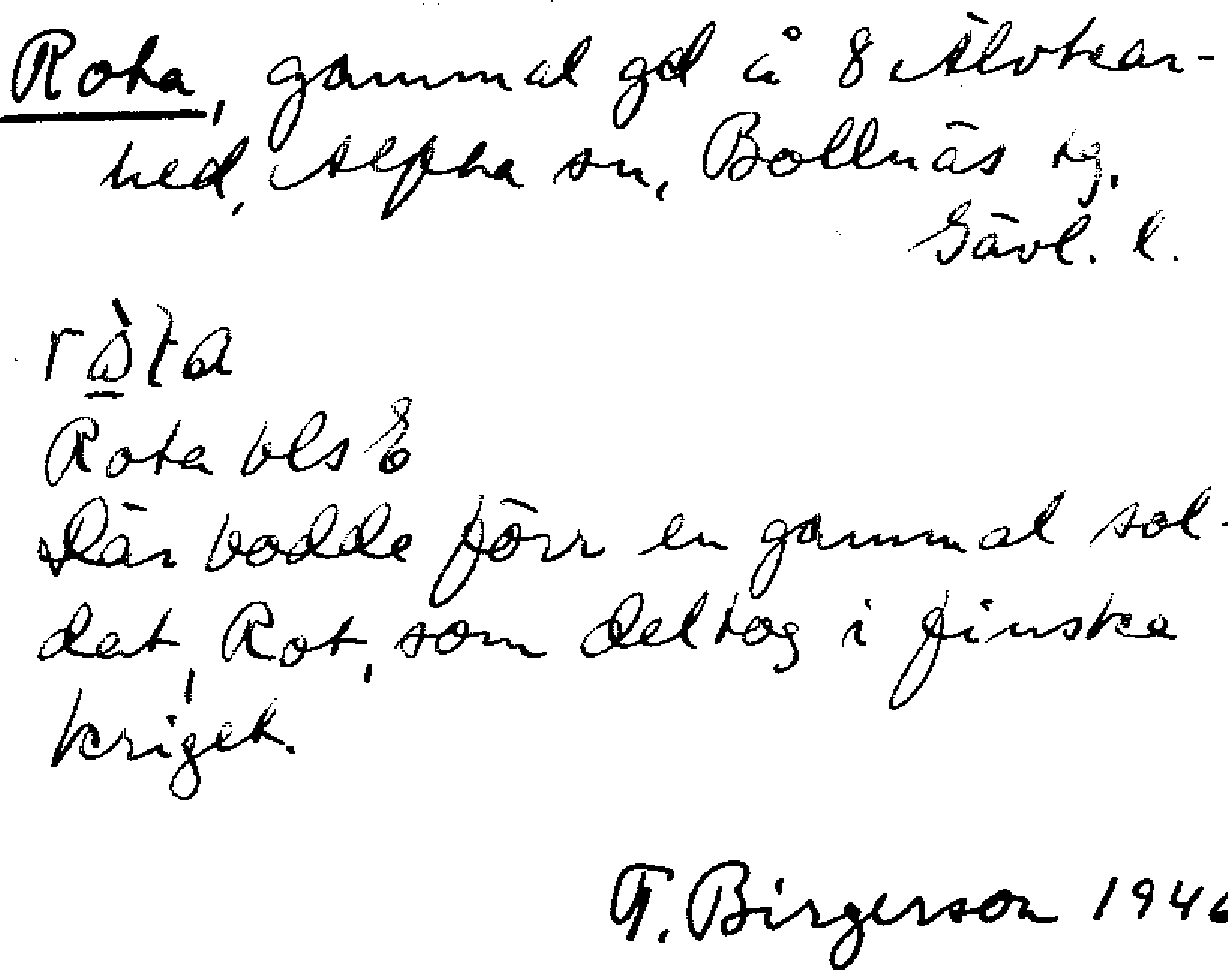 Rota, gammal gd å 8 Älvkar-
hed, Alfta sn, Bollnäs tg,
Gävl. l.
rò̲ta
Rota bls E
Där bodde förr en gammal sol-
dat, Rot, som deltog i finska
kriget.
F. Birgerson 1946